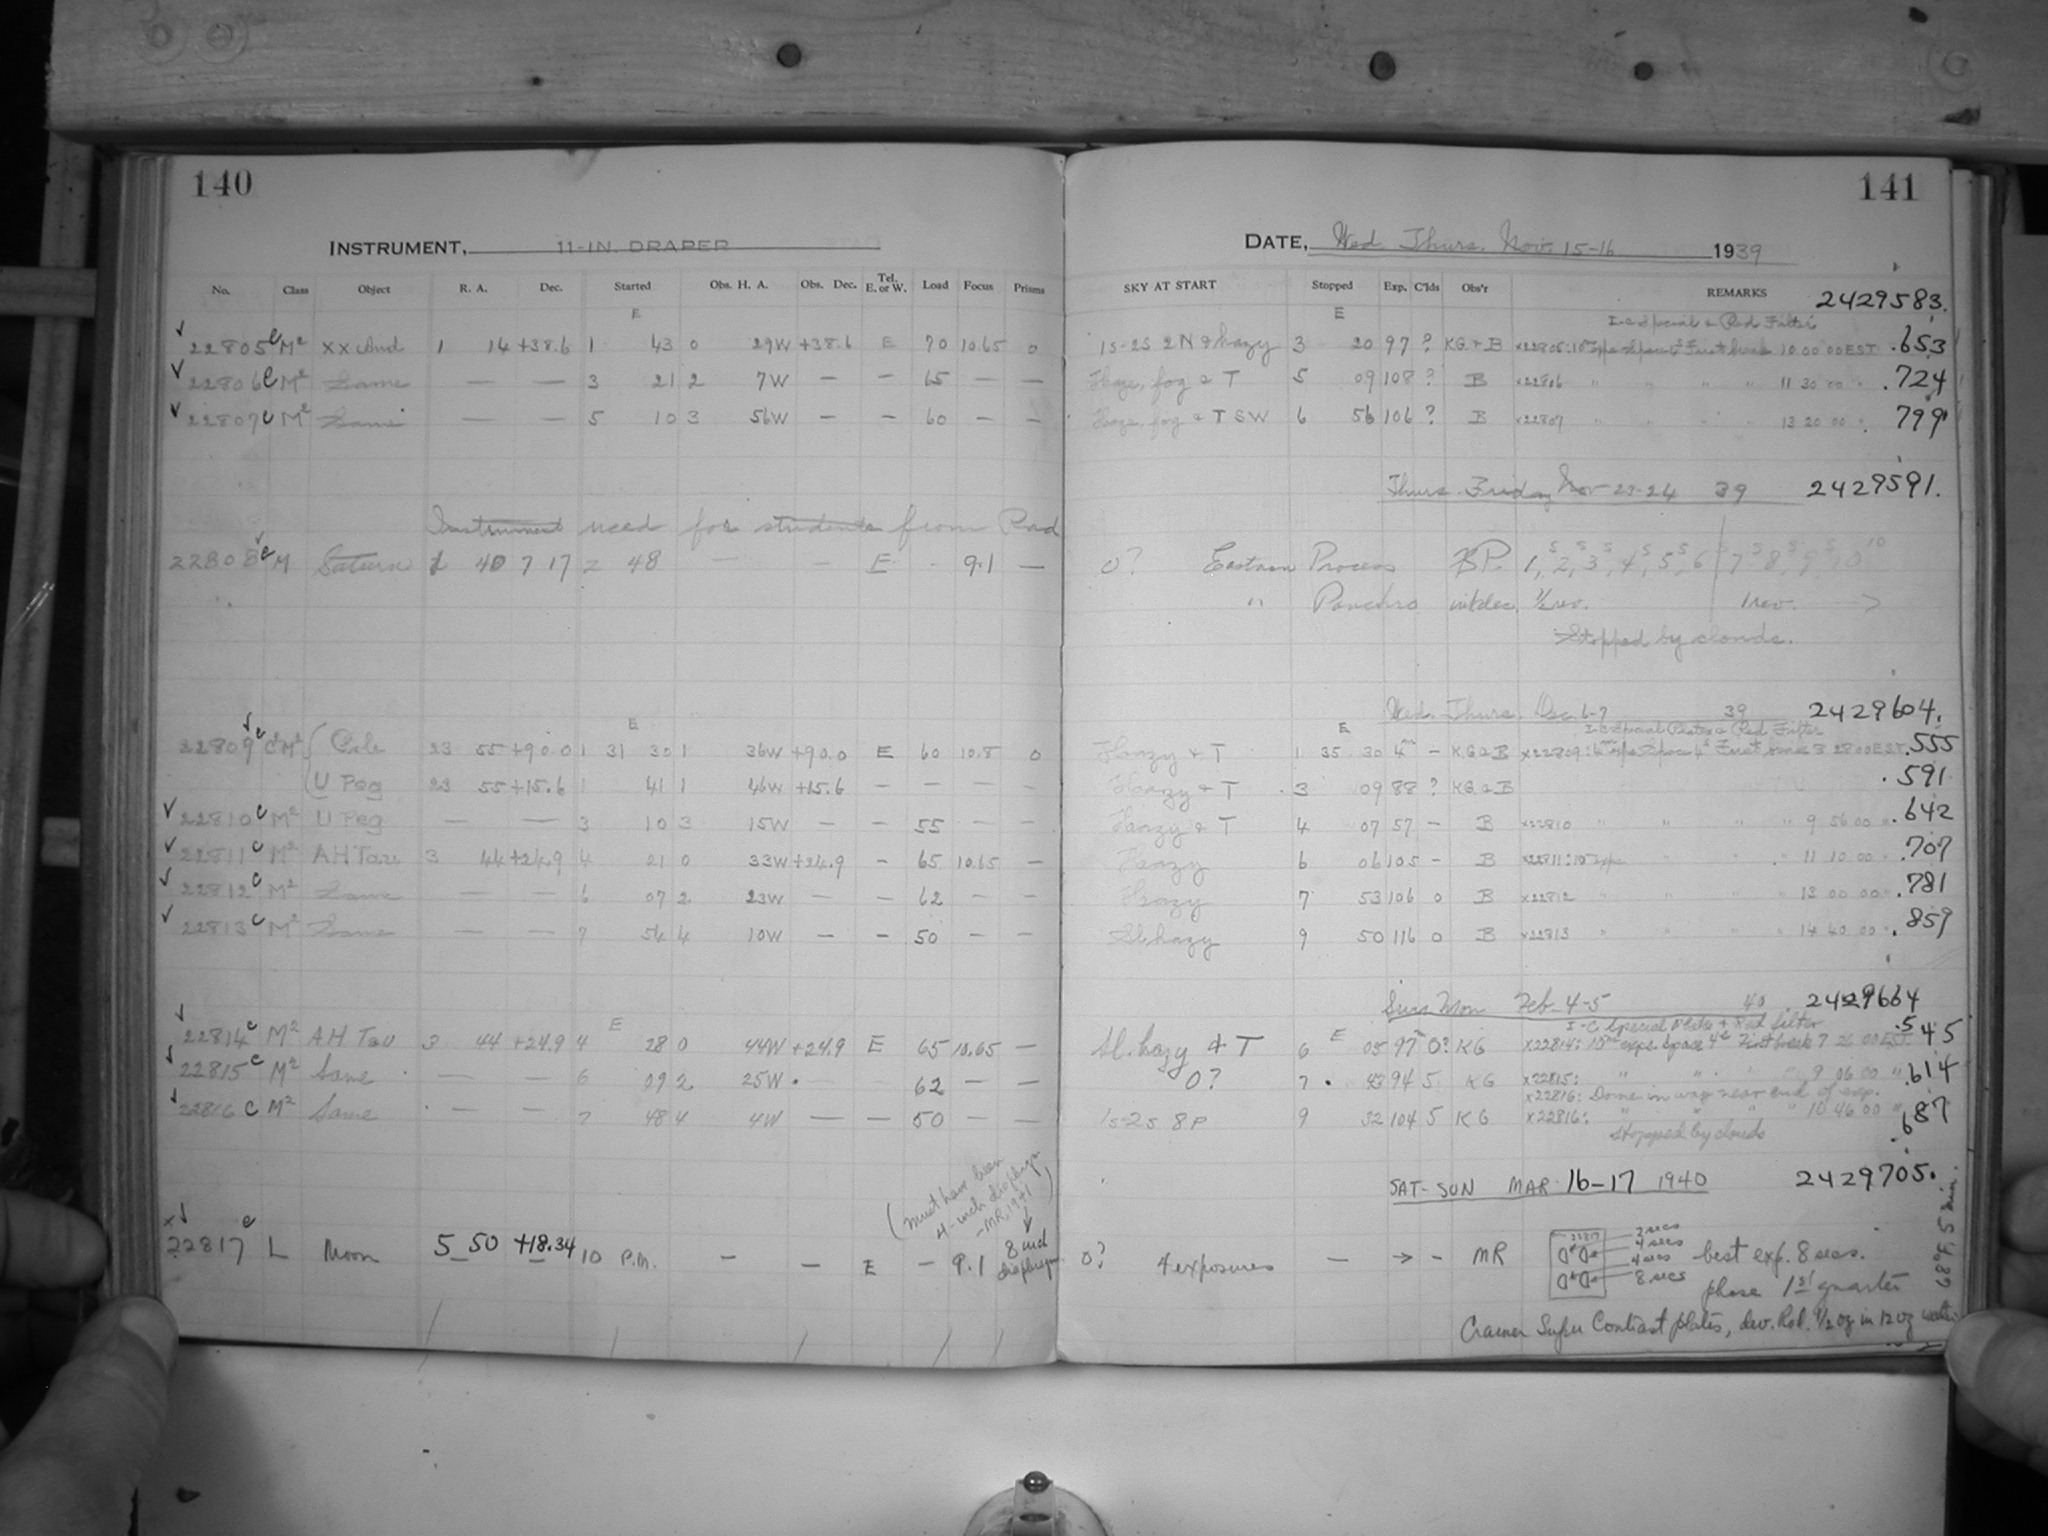 140
INSTRUMENT, 11-IN. DRAPER
No. Class Object R. A. Dec. Started Obs. H. A. Obs. Dec. Tel. E. or W. Load Focus Prisms
E
22805 c M² XX And 1 14 +38.6 1 43 0 29W +38.6 E 70 10.65 0
22806 c M² Same — — 3 21 2 7W — — 65 — —
22807 c M² Same — — 5 10 3 56W — — 60 — —
Instrument used for students from Rad
22808 c M Saturn 1 40 7 17 2 48 — — E 9.1 —
E
22809 c M² Pole 23 55 +90.0 1 31 30 1 36W +90.0 E 60 10.8 0
U Peg 23 55 +15.6 1 41 1 46W +15.6 — — — —
22810 c M² U Peg — — 3 10 3 15W — — 55 — —
22811 c M² AH Tau 3 44 +24.9 4 21 0 33W +24.9 — 65 10.65 —
22812 c M² Same — — 6 07 2 23W — — 62 — —
22813 c M² Same — — 7 54 4 10W — — 50 — —
E
22814 c M² AH Tau 3 44 +24.9 4 28 0 44W +24.9 E 65 10.65 —
22815 c M² Same — — 6 09 2 25W 62 — —
22816 c M² Same — — 7 48 4 4W — — 50 — —
(must have been
4-inch diaphragm
-MR, 1941)
22817 c L Moon 5 50 +18.34 10 P.M. — — E — 9.1 8 inch diaphragm
141
DATE, Wed. Thurs. Nov. 15-16 1939
SKY AT START Stopped Exp. C'lds Obs'r REMARKS 2429583.
E I-C Special & Red Filter
1s-2s 2N & hazy 3 20 97 ? KG & B x22805: 10m exps space 4s First break 10 00 00 EST .653
Haze, fog & T 5 09 108 ? B x22806 " " " " 11 30 00 " .724
Haze, fog & T SW 6 56 106 ? B x22807 " " " " 13 20 00 " .799
Thurs. Friday Nov 23-24 39 2429591.
0? Eastman Process B.P. 1, 2, 3, 4, 5, 6 7 8, 9, 10
" Panchro 1/2 rev. 1 rev. →
Stopped by clouds.
Wed. Thurs. Dec. 6-7 39 2429604.
E I-C Special Plates & Red Filter
Hazy & T 1 35 30 4m — KG & B x22809: exps space 4s First break 8 28 00 EST .555
Hazy & T 3 09 88 ? KG & B .591
Hazy & T 4 07 57 — B x22810 " " " 9 56 00 " .642
Hazy 6 06 105 — B x22811: 10m exps " " " 11 10 00 " .707
Hazy 7 53 106 0 B x22812 " " " " 13 00 00 " .781
Sl. hazy 9 50 116 0 B x22813 " " " " 14 40 00 " .859
Sun Mon Feb 4-5 40 2429664
I-C Special Plate & Red filter
Sl. hazy & T 6 E 05 97m 0? KG x22814: 10m exps. space 4s First break 7 26 00 EST .545
0? 7 43 94 5 KG x22815: " " " " 9 06 00 " .614
x22816: Dome in way near end of exp.
1s-2s 8P 9 32 104 5 KG x22816: " " " " 10 46 00 " .687
Stopped by clouds
SAT-SUN MAR 16-17 1940 2429705.
0? 4 exposures — → — MR 22817 2 secs
4 secs
4 secs
8 secs
best exp. 8 secs.
phase 1st quarter
Cramer Super Contrast plates, dev. Rod. 1/2 oz in 12 oz water
5 min.